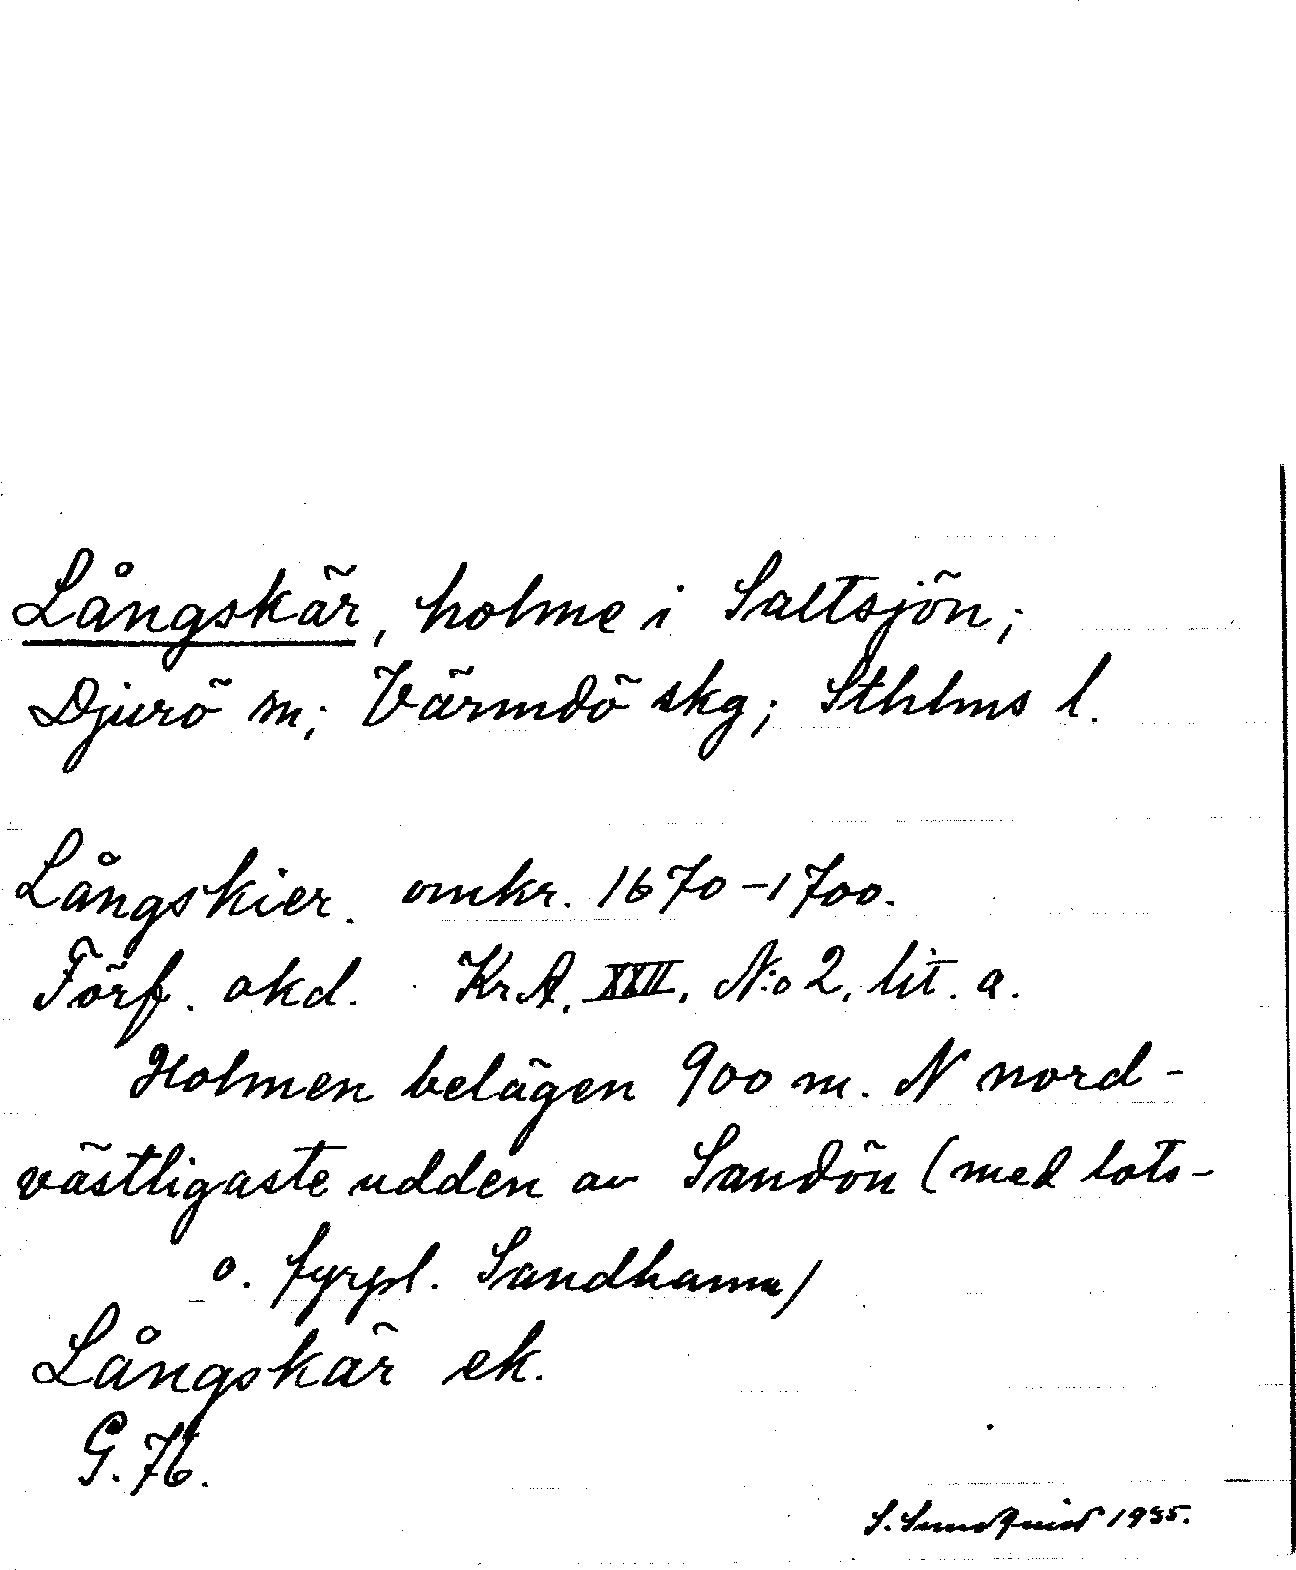 Långskär, holme i Saltsjön;
Djurö sn; Värmdö skg; Sthlms l.
Långskier. omkr. 1670-1700.
Förf. okd. KrA. XXII. N:o 2. lit. a.
Holmen belägen 900 m. N nord-
västligaste udden av Sandön (med lots-
o. fyrpl. Sandhamn)
Långskär ek.
G. 76.
S. 1935.